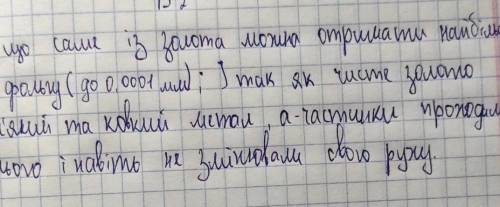 що саме із золота можна отримати найбіль
фольгу (до 0,0001 мм); ) так як чисте золото
'який та ковкий метал, а-частинки проходил
нього і навіть не змінювали свого руху.